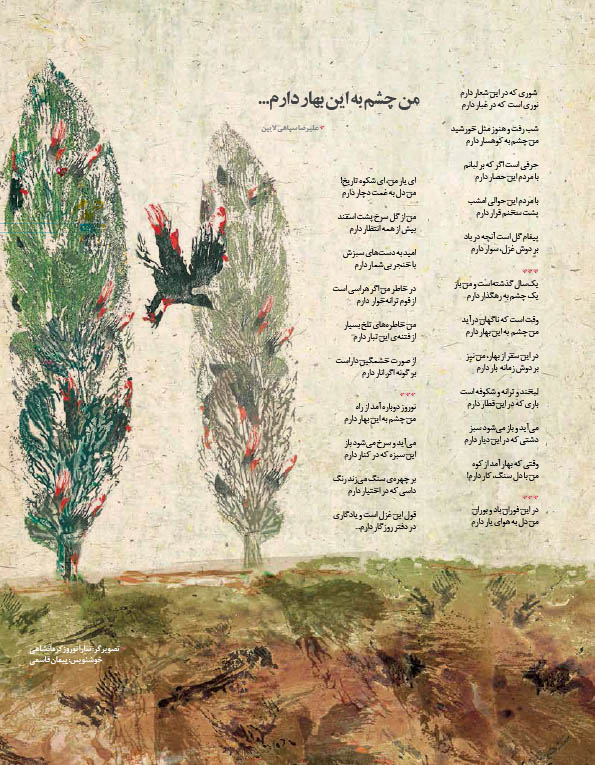 من چشم به این بهار دارم...
علیرضا سپاهی لایین
شوری که در این شعار دارم
نوری است که در غبار دارم
شب رفت و هنوز مثل خورشید
من چشم به کوهسار دارم
حرفی است اگر که بر لبانم
با مردم این حصار دارم
با مردم این حوالی امشب
پشت سخنم قرار دارم
پیغام گل است آنچه در باد
بر دوش غزل، سوار دارم
***
یک سال گذشته است و من باز
یک چشم به رهگذار دارم
وقت است که ناگهان در آید
من چشم به این بهار دارم
در این سفر از بهار، من نیز
بر دوش زمانه بار دارم
لبخند و ترانه و شکوفه است
باری که در این قطار دارم
می‌آید و باز می‌شود سبز
دشتی که در این دیار دارم
وقتی که بهار آمد از کوه
من با دل سنگ، کار دارم!
***
در این فوران باد و بوران
من دل به هوای یار دارم
ای یار من، ای شکوه تاریخ!
من دل به غمت دچار دارم
من از گل سرخ پشت اسفند
بیش از همه انتظار دارم
امید به دست‌های سبزش
با خنجر بی‌شمار دارم
در خاطر من اگر هراسی است
از قوم ترانه‌خوار دارم
من خاطره‌های تلخ بسیار
از فتنه‌ی این تبار دارم
از صورت خشمگین دار است
بر گونه اگر انار دارم
***
نوروز دوباره آمد از راه
من چشم به این بهار دارم
می‌آید و سرخ می‌شود باز
این سبزه که در کنار دارم
بر چهره‌ی سنگ می‌زند رنگ
داسی که در اختیار دارم
قول این غزل است و یادگاری
در دفتر روزگار دارم...
تصویرگر: سارا نوروز کرمانشاهی
خوشنویس: پیمان قاسمی